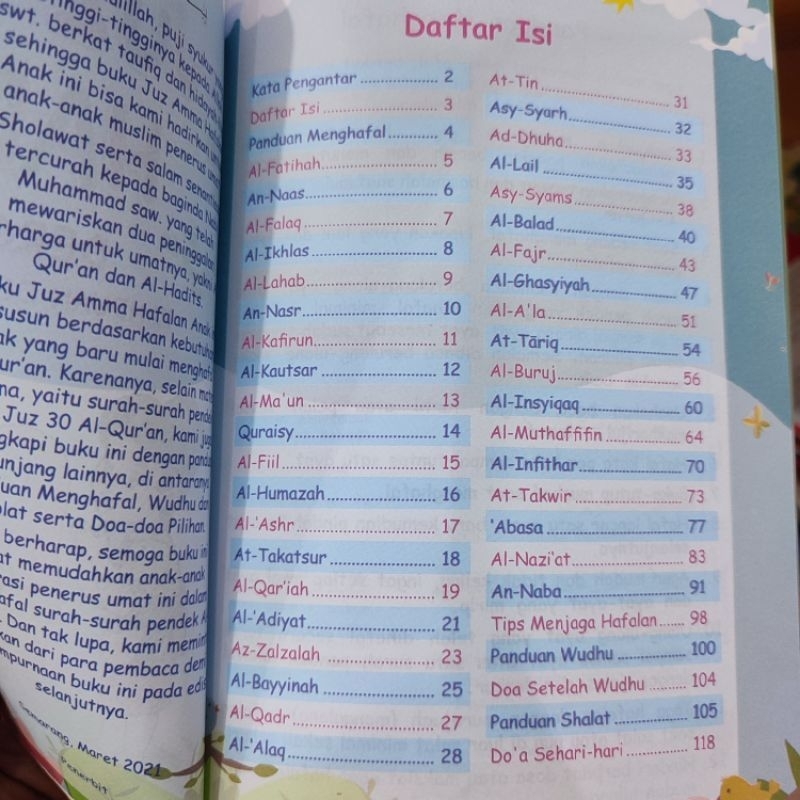 puji syukur
swt. berkat taufiq dan
sehingga buku Juz Amma
Anak ini bisa kami hadirkan
anak-anak muslim penerus
Sholawat serta salam
tercurah kepada baginda
Muhammad saw. yang telah
mewariskan dua
untuk umatnya,
Qur'an dan Al-Hadits.
Juz Amma Hafalan
susun berdasarkan
yang baru mulai
Karenanya, selain
yaitu surah-surah
Juz 30 Al-Qur'an, kami
buku ini dengan
lainnya, di
Menghafal, Wudhu dan
serta Doa-doa Pilihan.
berharap, semoga buku ini
memudahkan anak-anak
penerus umat ini dalam
surah-surah pendek
Dan tak lupa, kami
dari para pembaca
buku ini pada
selanjutnya.
Semarang, Maret 2021
Penerbit
Daftar Isi
Kata Pengantar .................. 2
Daftar Isi .......................... 3
Panduan Menghafal ............ 4
Al-Fatihah ........................ 5
An-Naas ........................... 6
Al-Falaq ........................... 7
Al-Ikhlas ........................... 8
Al-Lahab ........................... 9
An-Nasr ........................... 10
Al-Kafirun ........................ 11
Al-Kautsar ........................ 12
Al-Ma'un ........................... 13
Quraisy ........................... 14
Al-Fiil ........................... 15
Al-Humazah ..................... 16
Al-'Ashr ........................... 17
At-Takatsur ..................... 18
Al-Qar'iah ........................ 19
Al-'Adiyat ........................ 21
Az-Zalzalah ..................... 23
Al-Bayyinah ..................... 25
Al-Qadr ........................... 27
Al-'Alaq ........................... 28
At-Tin ........................... 31
Asy-Syarh ........................ 32
Ad-Dhuha ........................ 33
Al-Lail ........................... 35
Asy-Syams ........................ 38
Al-Balad ........................... 40
Al-Fajr ........................... 43
Al-Ghasyiyah ..................... 47
Al-A'la ........................... 51
At-Tāriq ........................... 54
Al-Buruj ........................... 56
Al-Insyiqaq ........................ 60
Al-Muthaffifin .................. 64
Al-Infithar ........................ 70
At-Takwir ........................ 73
'Abasa ........................... 77
Al-Nazi'at ........................ 83
An-Naba ........................... 91
Tips Menjaga Hafalan ...... 98
Panduan Wudhu ............... 100
Doa Setelah Wudhu ......... 104
Panduan Shalat ............... 105
Do'a Sehari-hari ............ 118